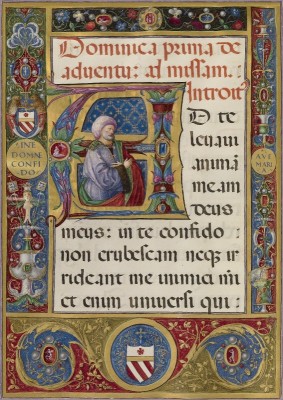 Dominica prima de
aduentu: ad missam.
Introit
AD te
leuaui
animā
meam
deus
meus: in te confido
non erubescam neqꝫ ir
rideant me inimici
et enim uniuersi qui:
DOMN
CONFI
DO
AVE
MARI
A